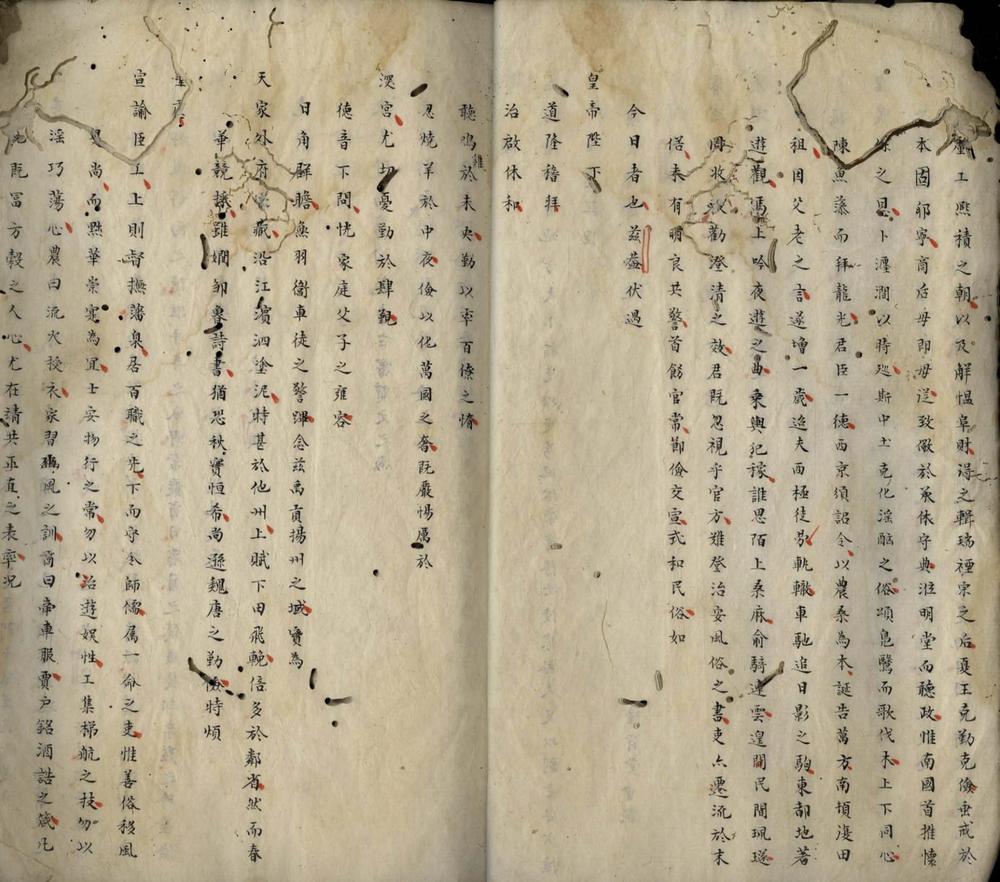 釐工熙積之朝以及解慍阜財潯之輯瑞禋宗之后夏王克勤克儉垂戒於
本固邦寧商后毋即毋逆致儆於承休守典涖明堂而聽政惟南國首推懷
之恩卜瀍澗以時廵斯中土克化淫酗之俗頌鳧鷖而歌伐木上下同心
陳魚藻而拜龍光君臣一德西京須詔令以農桑為本誕告萬方南頓復田
租因父老之言遂增一歲迨夫西極徒勞軌轍車馳追日影之駒東都地著
遊觀馬上吟夜遊之曲乘輿犯稼誰思陌上桑麻俞騎連雲遑聞民間珮璲
周收效勸澄清之效君既忽視乎官方雖登治安風俗之書吏亦遷流於末
俗未有明良共警首飭官常節儉交宣式和民俗如
今日者也茲蓋伏遇
皇帝陛下
道隆稽拜
治啟休和
聽鳴雞於未央勤以率百僚之惰
忍燒羊於中夜儉以化萬國之奢既嚴惕厲於
深宮尤切憂勤於肆覲
德音下問恍家庭父子之雍容
日角羣瞻煥羽衛車徒之警蹕念茲禹貢揚州之域實為
天家外府之藏沿江濱泗塗泥特甚於他州上賦下田飛輓倍多於鄰省然而春
華競摭雖嫻鄒魯詩書猶恐秋實恒希尚遜魏唐之勤儉特煩
宣諭臣工上則督撫藩臬居百職之先下而守令師儒属一命之吏惟善俗移風
是尚而黜華崇實為宜士安物行之常勿以冶遊娱性工集梯航之技勿以
淫巧蕩心農曰流火授衣家習豳風之訓商曰牽車服賈户銘酒誥之箴凡
此既富方穀之人心尤在靖共正直之表率况